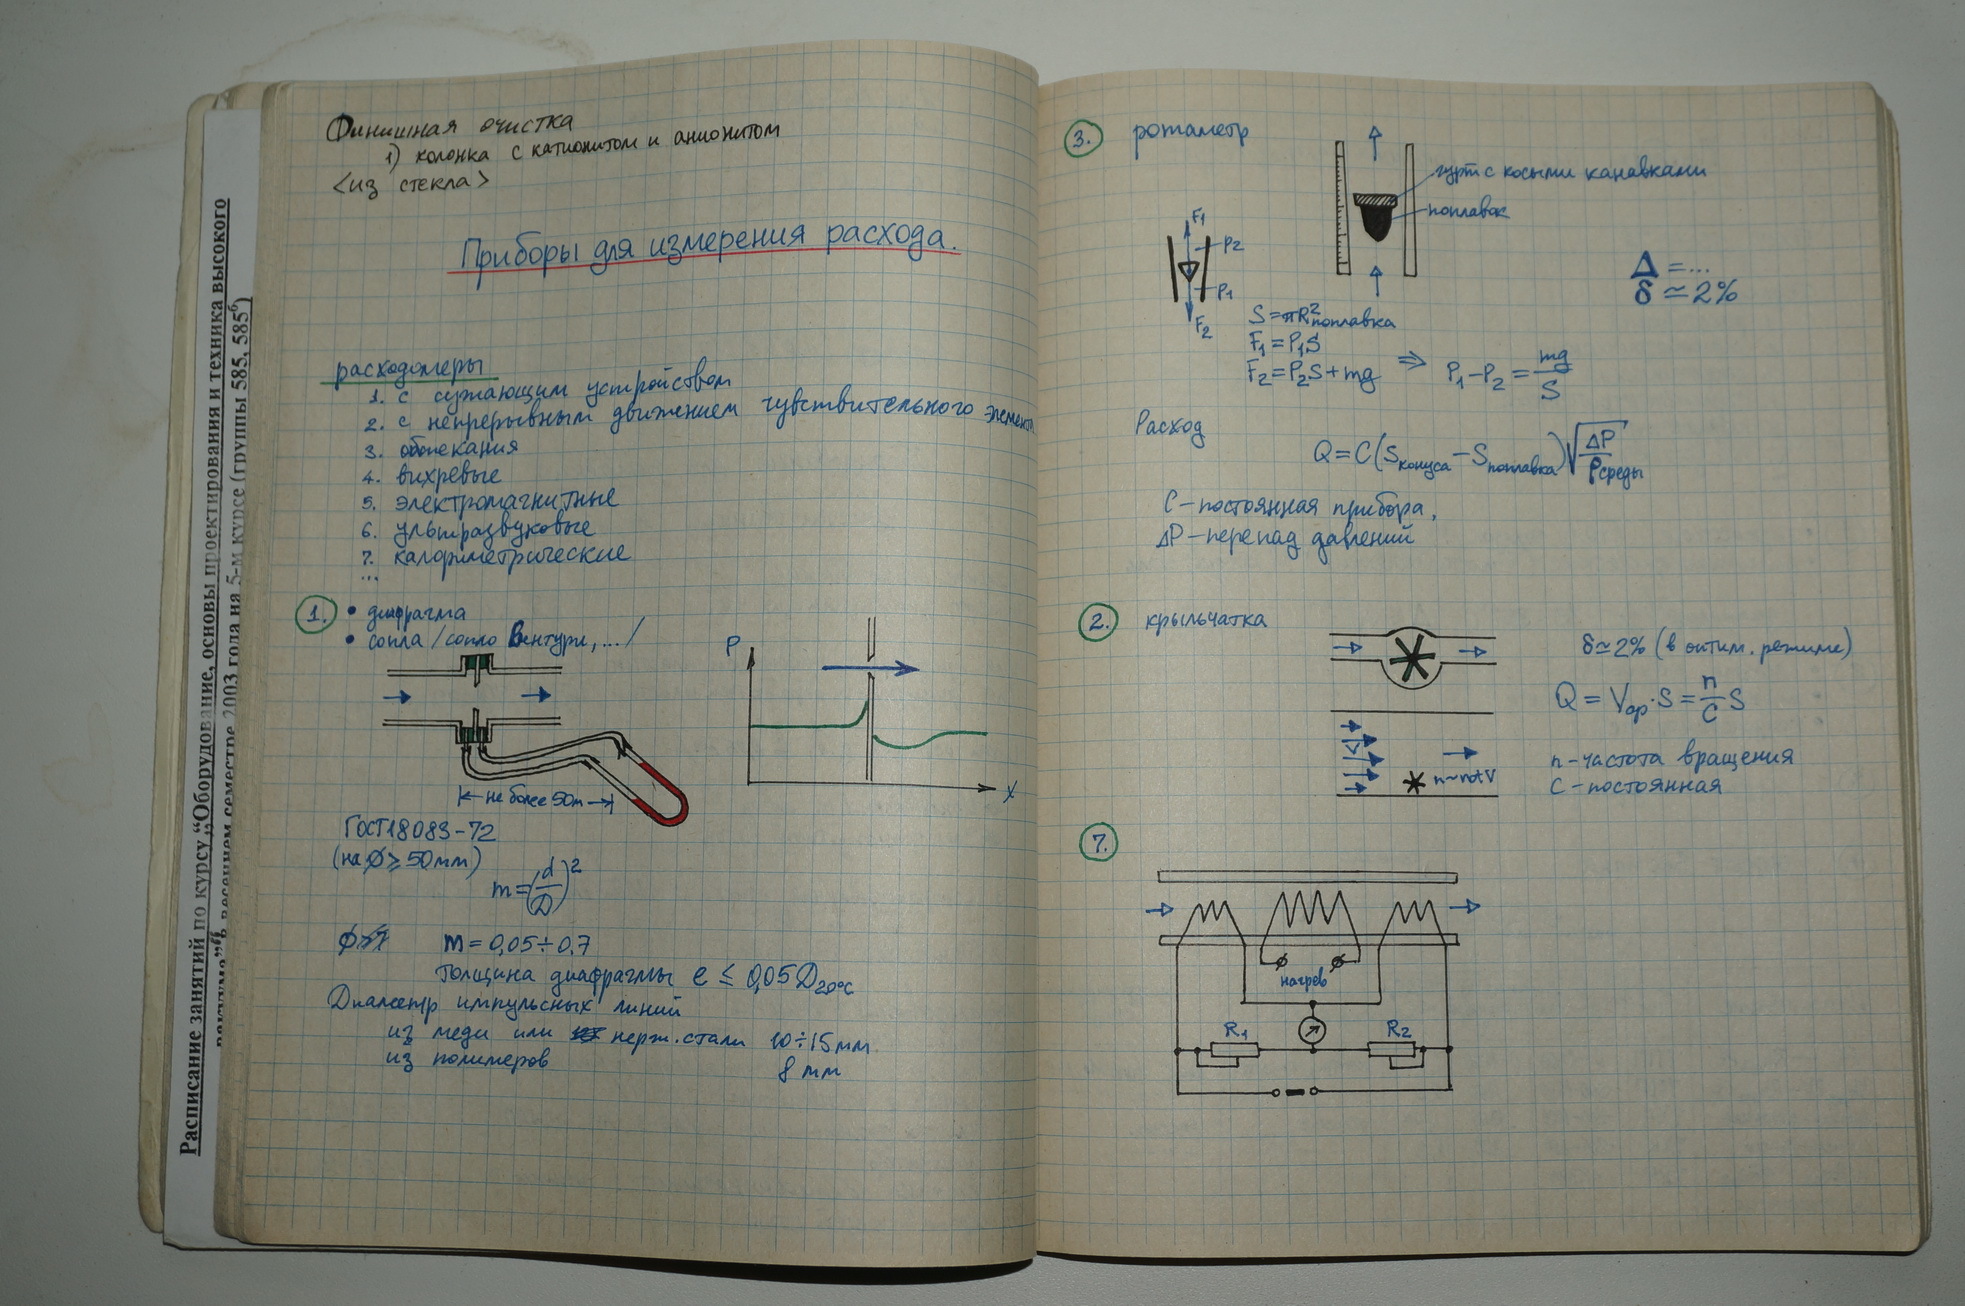 Расписание занятий по курсу „Оборудование, основы проектирования и техника высокого
весеннем семестре 2003 года на 5-м курсе (группы 585, 585б)
Финишная очистка
1) колонка с катионитом и анионитом
<из стекла>
Приборы для измерения расхода.
расходомеры
1. с сужающим устройством
2. с непрерывным движением чувствительного элемента
3. обтекания
4. вихревые
5. электромагнитные
6. ультразвуковые
7. калориметрические
...
1. • диафрагма
• сопла /сопло Вентури, .../
P
x
не более 50m
ГОСТ18083-72
(на ϕ ≥ 50мм)
m = (d/D)²
m = 0,05 ÷ 0,7
толщина диафрагмы e ≤ 0,05 D20°C
Диаметр импульсных линий
из меди или нерж. стали 10÷15мм
из полимеров 8 мм
3. ротаметр
гурт с косыми канавками
поплавок
F1
P2
P1
F2
Δ = ...
δ ≃ 2%
S = πR²поплавка
F1 = P1S
F2 = P2S + mg ⇒ P1 − P2 = mg/S
Расход
Q = C(Sконуса − Sпоплавка)√(ΔP/ρсреды)
C − постоянная прибора,
ΔP − перепад давлений
2. крыльчатка
δ ≃ 2% (в оптим. режиме)
Q = Vср · S = n/C S
n ~ not V
n − частота вращения
C − постоянная
7.
нагрев
R1
R2